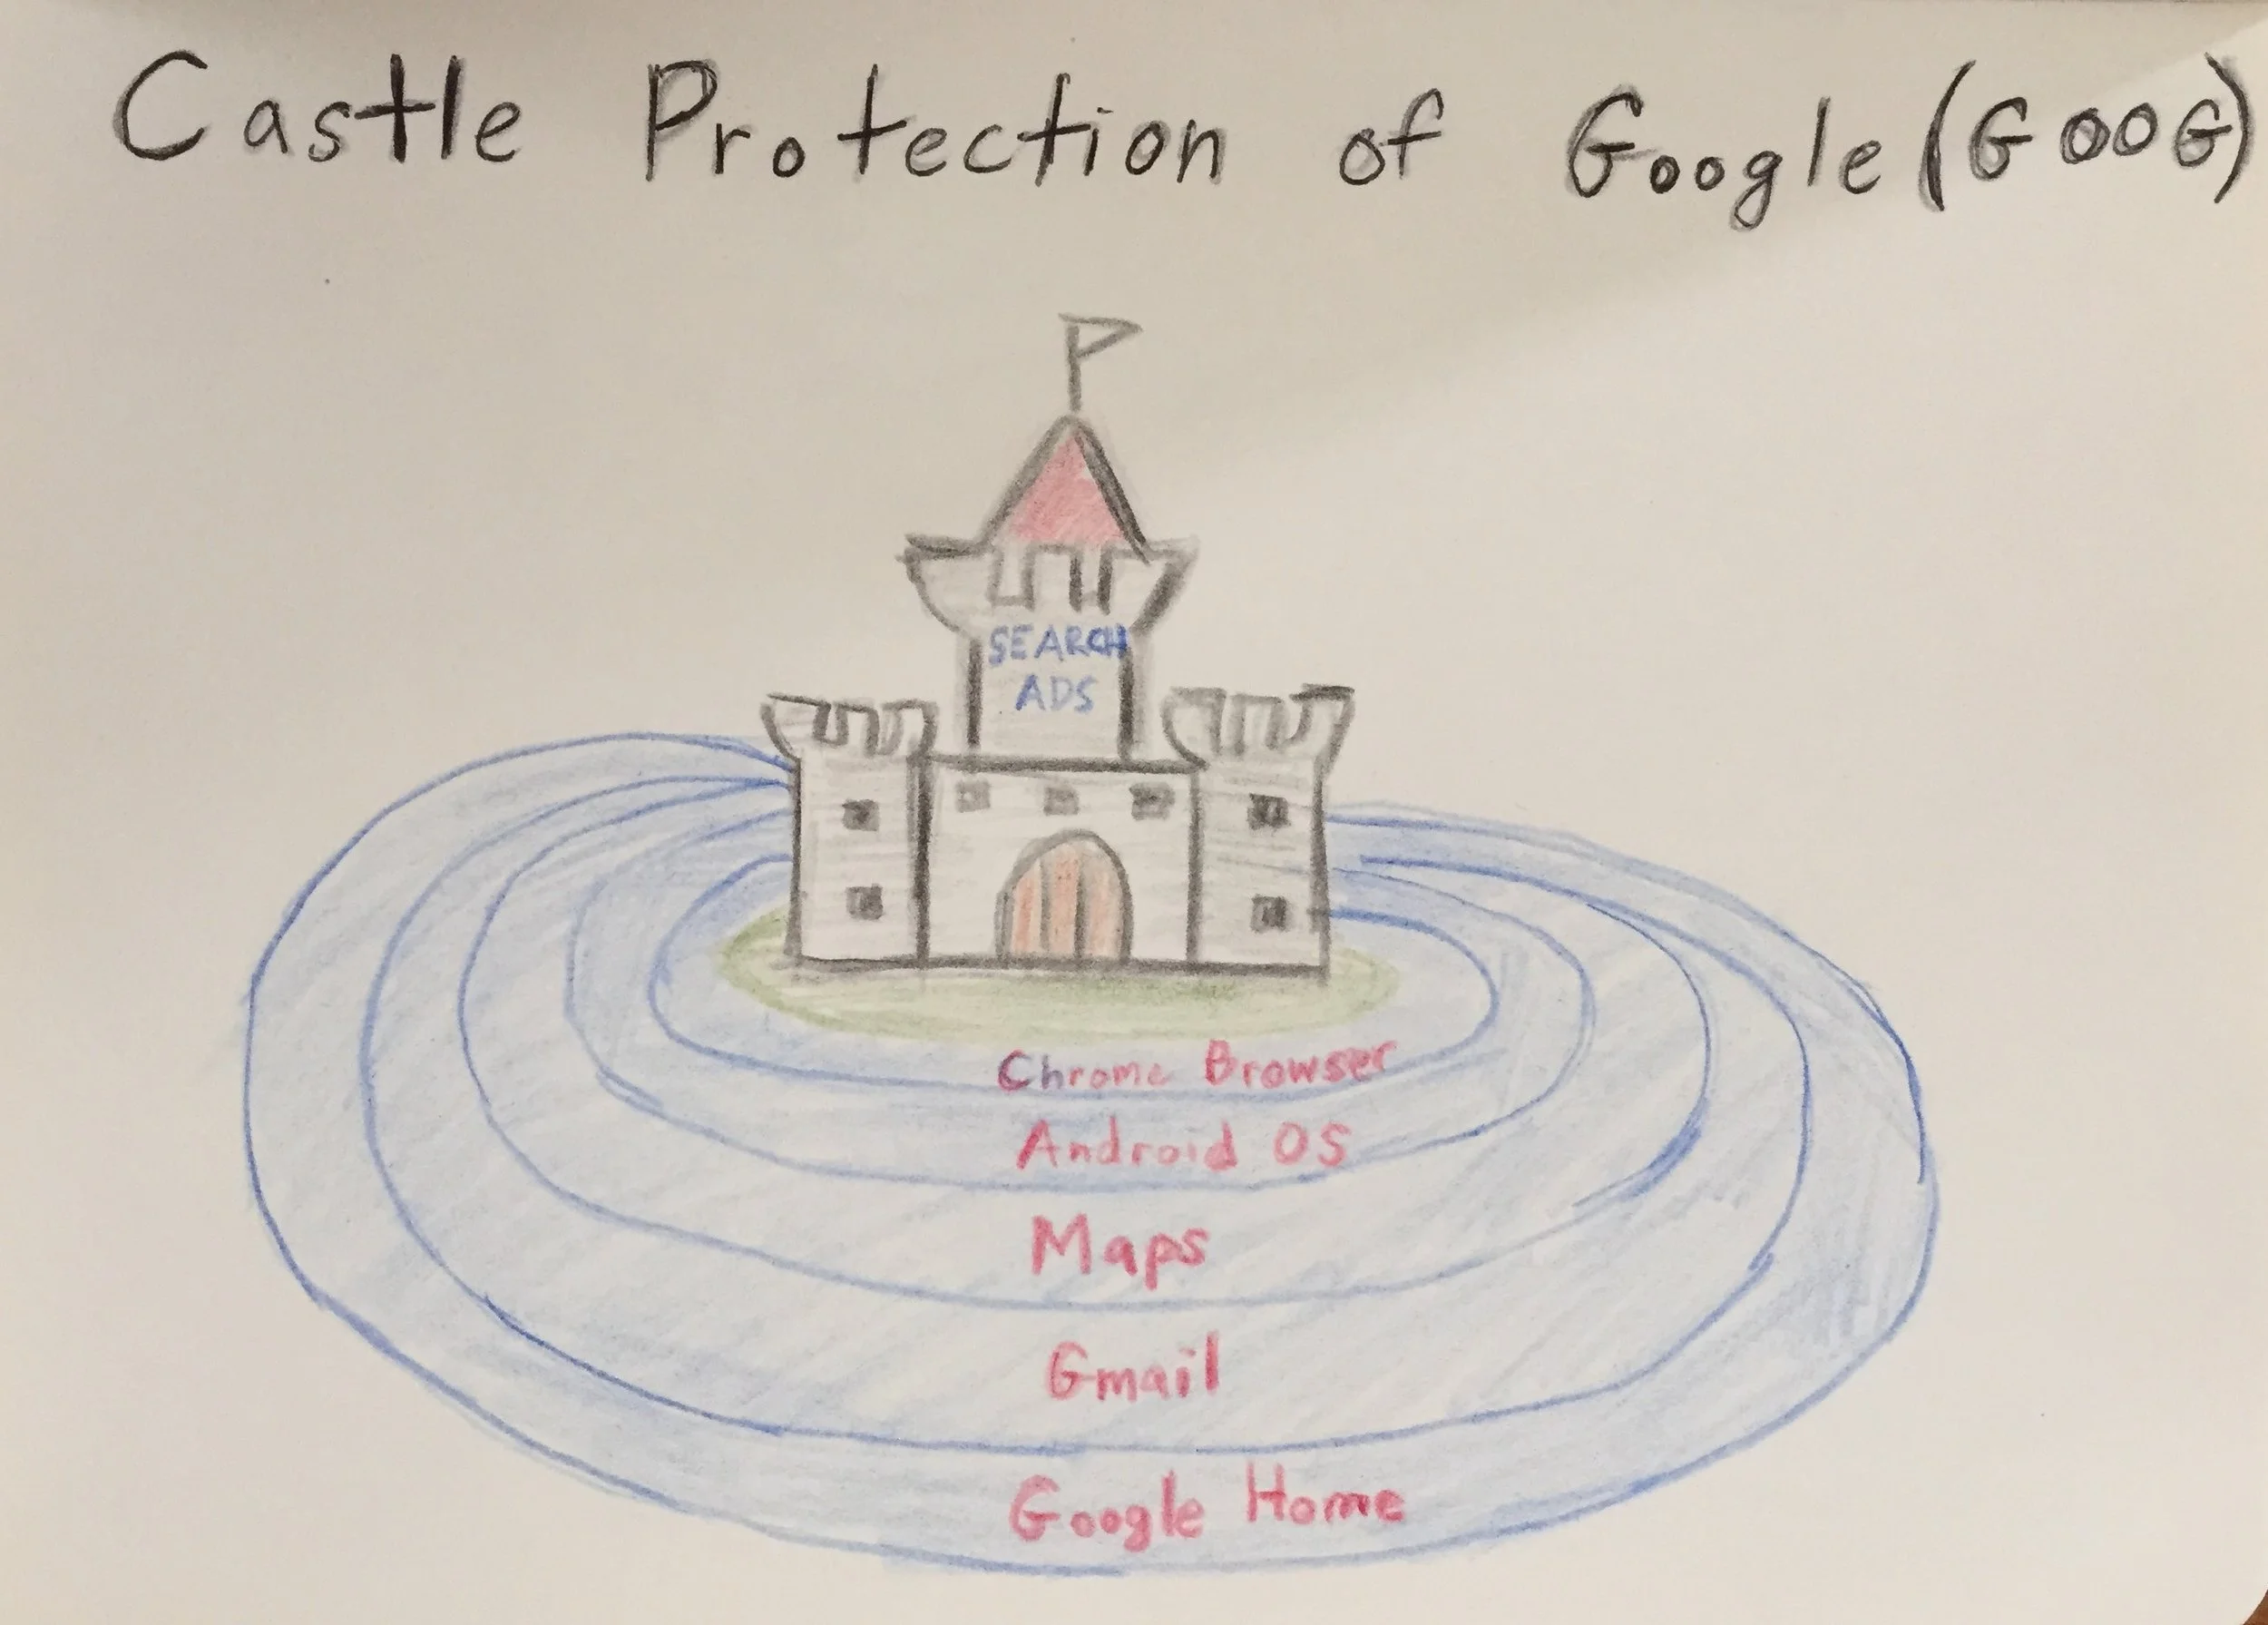 Castle Protection of Google (GOOG)
SEARCH
ADS
Chrome Browser
Android OS
Maps
Gmail
Google Home